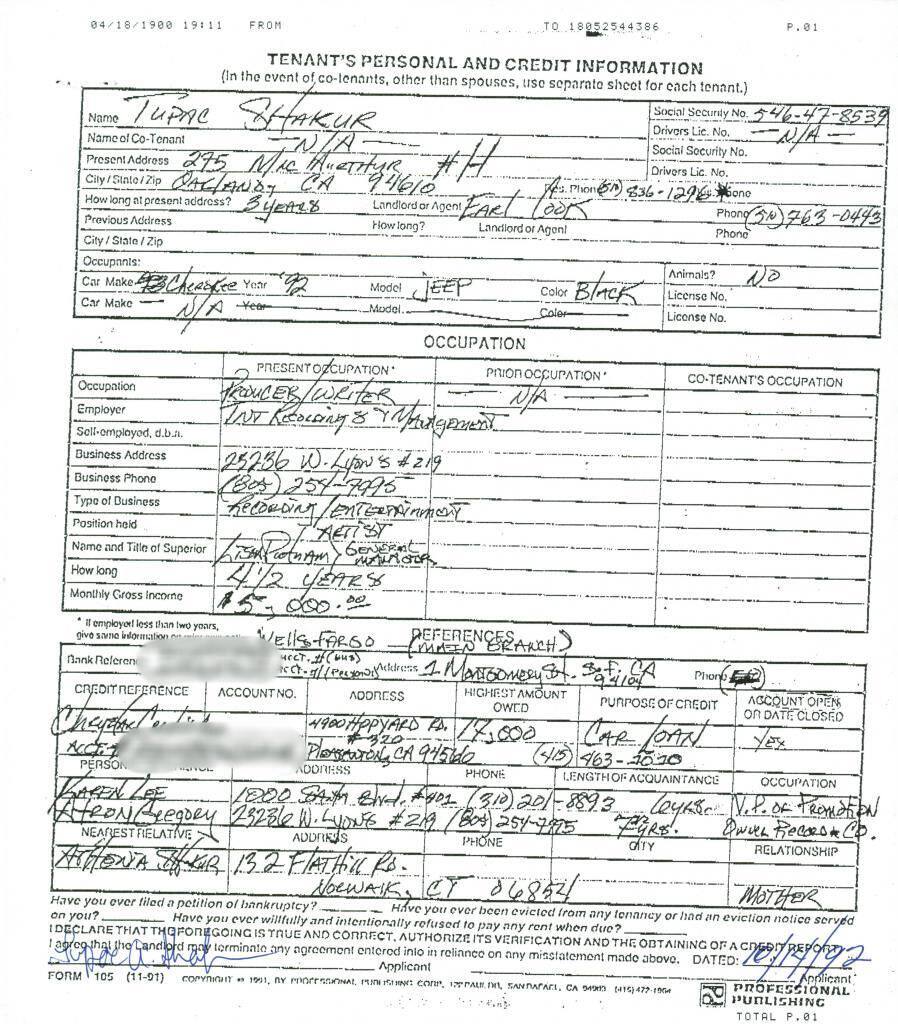 04/18/1900 19:11 FROM TO 18052544386 P.01
TENANT'S PERSONAL AND CREDIT INFORMATION
(In the event of co-tenants, other than spouses, use separate sheet for each tenant.)
Name TUPAC SHAKUR Social Security No. 546-47-8539
Name of Co-Tenant —N/A— Drivers Lic. No. —N/A—
Social Security No.
Present Address 275 MAC ARTHUR #H Drivers Lic. No.
City / State / Zip OAKLAND, CA 94610 Res. Phone (510) 836-1296 Bus. Phone
How long at present address? 3 YEARS Landlord or Agent EARL COOK Phone (510) 763-0443
Previous Address How long? Landlord or Agent Phone
City / State / Zip
Occupants: Animals? NO
Car Make CHEROKEE Year '92 Model JEEP Color BLACK License No.
Car Make — N/A Year Model Color License No.
OCCUPATION
PRESENT OCCUPATION* PRIOR OCCUPATION* CO-TENANT'S OCCUPATION
Occupation PRODUCER/WRITER — N/A —
Employer TNT RECORDING & MANAGEMENT
Self-employed, d.b.a.
Business Address 23236 W. LYONS #219
Business Phone (805) 254-7995
Type of Business RECORDING/ENTERTAINMENT
Position held ARTIST
Name and Title of Superior LISA PUTNAM/ GENERAL MANAGER
How long 4 1/2 YEARS
Monthly Gross Income $5,000.00
* If employed less than two years,
give same information on WELLS FARGO REFERENCES (MAIN BRANCH)
Bank Reference ACCT. # (BUS) Address 1 MONTGOMERY St. S.F. CA Phone
ACCT. # (PERSONAL) 94104
CREDIT REFERENCE ACCOUNT NO. ADDRESS HIGHEST AMOUNT OWED PURPOSE OF CREDIT ACCOUNT OPEN OR DATE CLOSED
4900 HOPYARD RD. 17,000 CAR LOAN YES
ACCT # #320 PLEASANTON, CA 94566 (415) 463-1020
ADDRESS PHONE LENGTH OF ACQUAINTANCE OCCUPATION
KAREN LEE 1800 Blvd. #401 (310) 201-8893 6 yrs. V.P. OF PROMOTION
ATRON GREGORY 23236 W. LYONS #219 (805) 254-7995 7 YRS. RECORD CO.
NEAREST RELATIVE ADDRESS PHONE CITY RELATIONSHIP
AFHENIA SHAKUR 132 FLATHILL RD.
NORWALK, CT 06854 MOTHER
Have you ever filed a petition of bankruptcy? Have you ever been evicted from any tenancy or had an eviction notice served
on you? Have you ever willfully and intentionally refused to pay any rent when due?
I DECLARE THAT THE FOREGOING IS TRUE AND CORRECT, AUTHORIZE ITS VERIFICATION AND THE OBTAINING OF A CREDIT REPORT.
I agree that the Landlord may terminate any agreement entered into in reliance on any misstatement made above. DATED: 10/14/92
Tupac A. Shakur Applicant Applicant
FORM 105 (11-91) COPYRIGHT © 1991, BY PROFESSIONAL PUBLISHING CORP, 122 PAUL DR, SAN RAFAEL, CA 94903 (415) 472-1964
PROFESSIONAL
PUBLISHING
TOTAL P.01